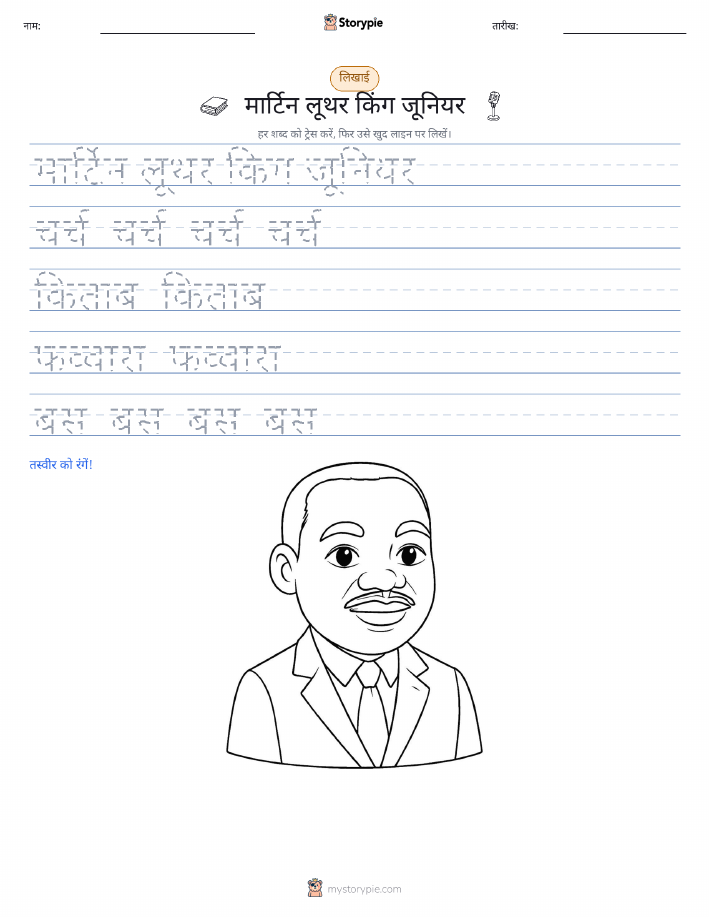 नाम: Storypie तारीख:
लिखाई
मार्टिन लूथर किंग जूनियर
हर शब्द को ट्रेस करें, फिर उसे खुद लाइन पर लिखें।
मार्टिन लूथर किंग जूनियर
चर्च चर्च चर्च चर्च
किताब किताब
फव्वारा फव्वारा
बस बस बस बस
तस्वीर को रंगें!
mystorypie.com